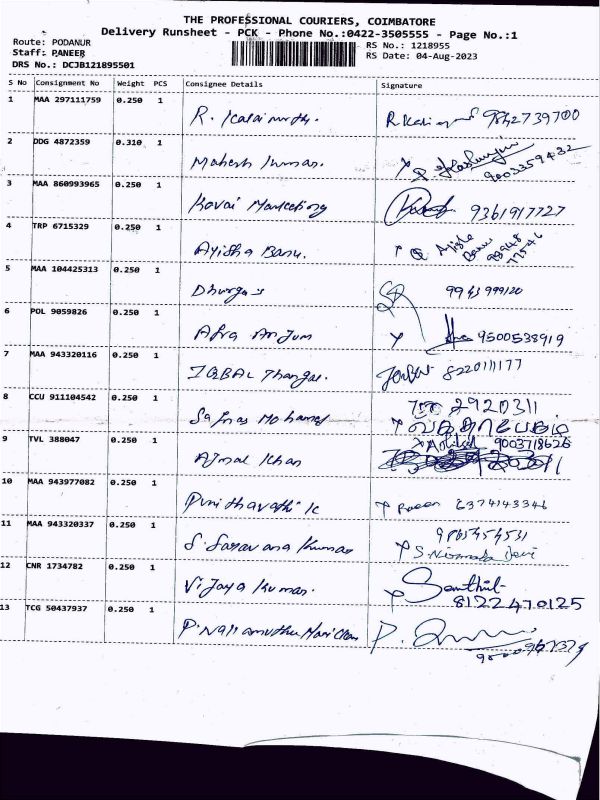 THE PROFESSIONAL COURIERS, COIMBATORE
Delivery Runsheet - PCK - Phone No.:0422-3505555 - Page No.:1
Route: PODANUR
RS No.: 1218955
Staff: PANEER
RS Date: 04-Aug-2023
DRS No.: DCJB121895501
S No Consignment No Weight PCS Consignee Details Signature
1 MAA 297111759 0.250 1
R. Kalai 9842739700
2 DDG 4872359 0.310 1
Mahesh Kumar. 9003359432
3 MAA 860993965 0.250 1
Kovai Marketing 9361917727
4 TRP 6715329 0.250 1
Ayisha Banu. Banu
5 MAA 104425313 0.250 1
Dhurga s 9943999120
6 POL 9059826 0.250 1
Afra Anjum 9500538919
7 MAA 943320116 0.250 1
IQBAL 8220111177
8 CCU 911104542 0.250 1
2920311
9 TVL 388047 0.250 1
Ajmal Khan 9003718626
10 MAA 943977082 0.250 1
Punithavathi K 6374143346
11 MAA 943320337 0.250 1
S Saravana Kumar S. Nirmala Devi
12 CNR 1734782 0.250 1
Vijaya Kumar. Senthil
8122470125
13 TCG 50437937 0.250 1